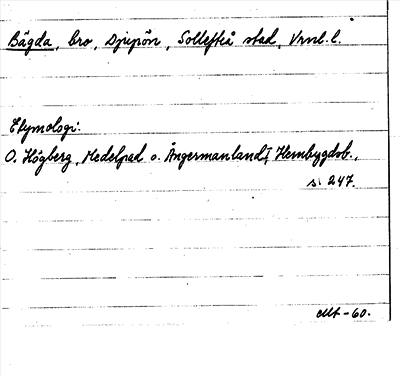 Bägda, bro, Djupön, Sollefteå stad, Vrnl. l.
Etymologi:
O. Högberg, Medelpad o. Ångermanland I Hembygdsb.,
s. 247.
-60.